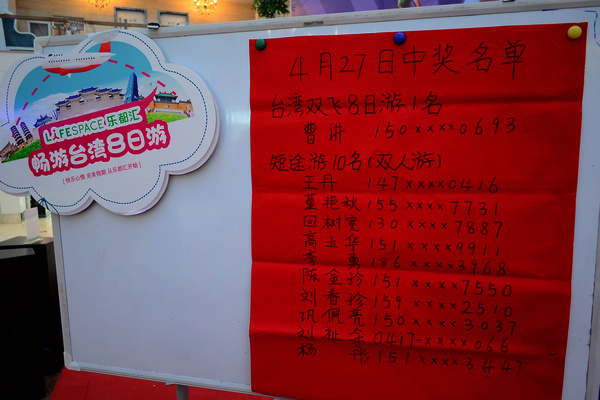 LIFESPACE 乐都汇
畅游台湾8日游
[快乐心情 完美假期 从乐都汇开始]
4月27日中奖名单
台湾双飞8日游1名
曹讲 150××××0693
短途游10名(双人游)
王丹 147××××0416
董艳秋 155××××7731
回树宽 130××××7887
高立华 151××××9911
李勇 186××××3968
陈金玲 151××××7550
刘香珍 159××××2510
巩佩亮 150××××3037
刘祉余 0417-××××066
杨彤 151××××3447